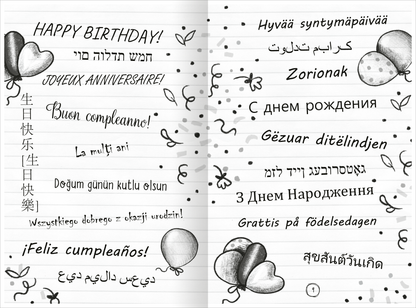 HAPPY BIRTHDAY!
שמח הולדת יום
JOYEUX ANNIVERSAIRE!
生日快乐[生日快樂]
Buon compleanno!
La mulţi ani
Doğum günün kutlu olsun
Wszystkiego dobrego z okazji urodzin!
¡Feliz cumpleaños!
ديعس داليم ديع
Hyvää syntymäpäivää
كرابم تدلوت
Zorionak
С днем рождения
Gëzuar ditëlindjen
געבורסטאָג דיין מזל
З Днем Народження
Grattis på födelsedagen
สุขสันต์วันเกิด